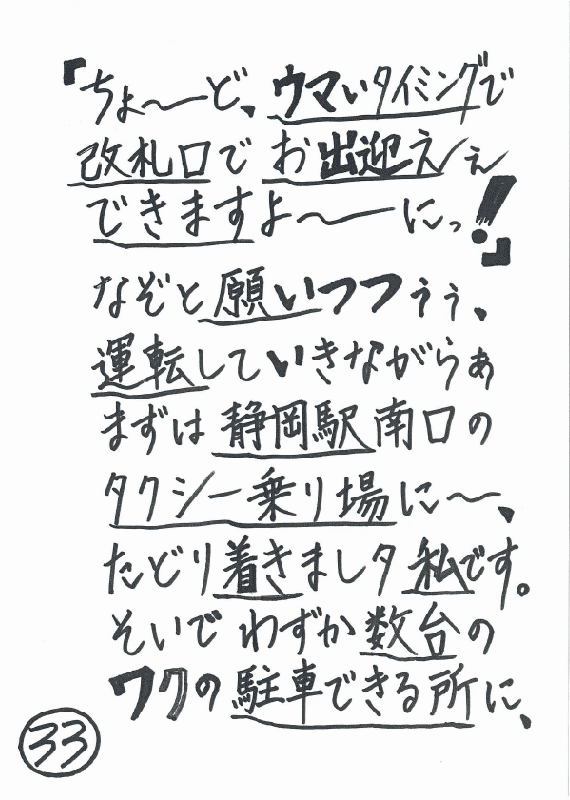 『ちょ〜〜ど、ウマいタイミングで
改札口でお出迎えぇ
できますよ〜〜にっ！』
なぞと願いつつぅぅ、
運転していきながらぁ
まずは静岡駅南口の
タクシー乗り場に〜、
たどり着きましタ私です。
そいでわずか数台の
ワクの駐車できる所に、
33